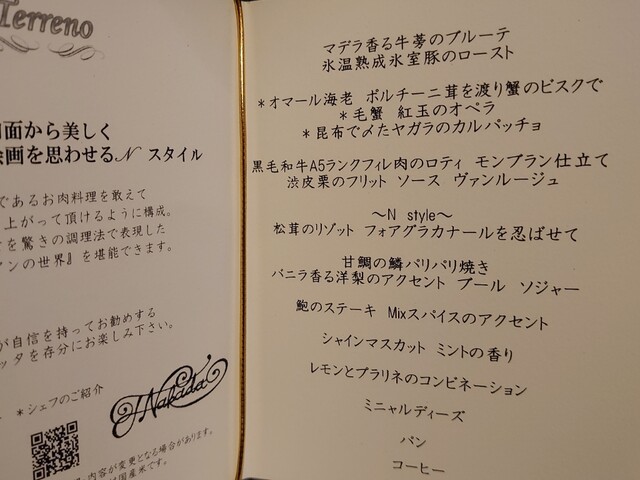 Terreno
面から美しく
絵画を思わせるN スタイル
であるお肉料理を敢えて
上がって頂けるように構成。
を驚きの調理法で表現した
ンの世界』を堪能できます。
が自信を持ってお勧めする
ッタを存分にお楽しみ下さい。
*シェフのご紹介
内容が変更となる場合があります。
は国産米です。
マデラ香る牛蒡のブルーテ
氷温熟成氷室豚のロースト
*オマール海老 ポルチーニ茸を渡り蟹のビスクで
*毛蟹 紅玉のオペラ
*昆布で〆たヤガラのカルパッチョ
黒毛和牛A5ランクフィレ肉のロティ モンブラン仕立て
渋皮栗のフリット ソース ヴァンルージュ
～N style～
松茸のリゾット フォアグラカナールを忍ばせて
甘鯛の鱗パリパリ焼き
バニラ香る洋梨のアクセント ブール ソジャー
鮑のステーキ Mixスパイスのアクセント
シャインマスカット ミントの香り
レモンとプラリネのコンビネーション
ミニャルディーズ
パン
コーヒー